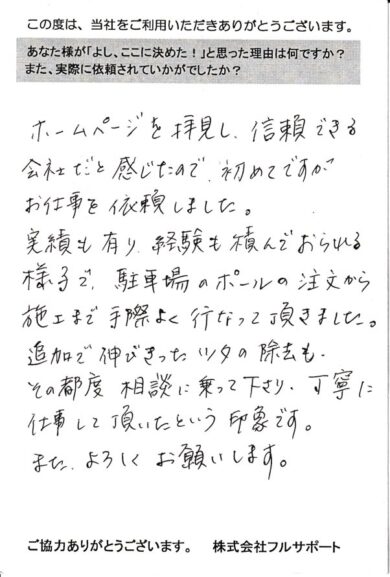 この度は、当社をご利用いただきありがとうございます。
あなた様が「よし、ここに決めた！」と思った理由は何ですか？
また、実際に依頼されていかがでしたか？
ホームページを拝見し、信頼できる
会社だと感じたので、初めてですが
お仕事を依頼しました。
実績も有り、経験も積んでおられる
様子で、駐車場のポールの注文から
施工まで手際よく行なって頂きました。
追加で伸びきったツタの除去も、
その都度 相談に乗って下さり、丁寧に
仕事して頂いたという印象です。
また、よろしくお願いします。
ご協力ありがとうございます。 株式会社フルサポート